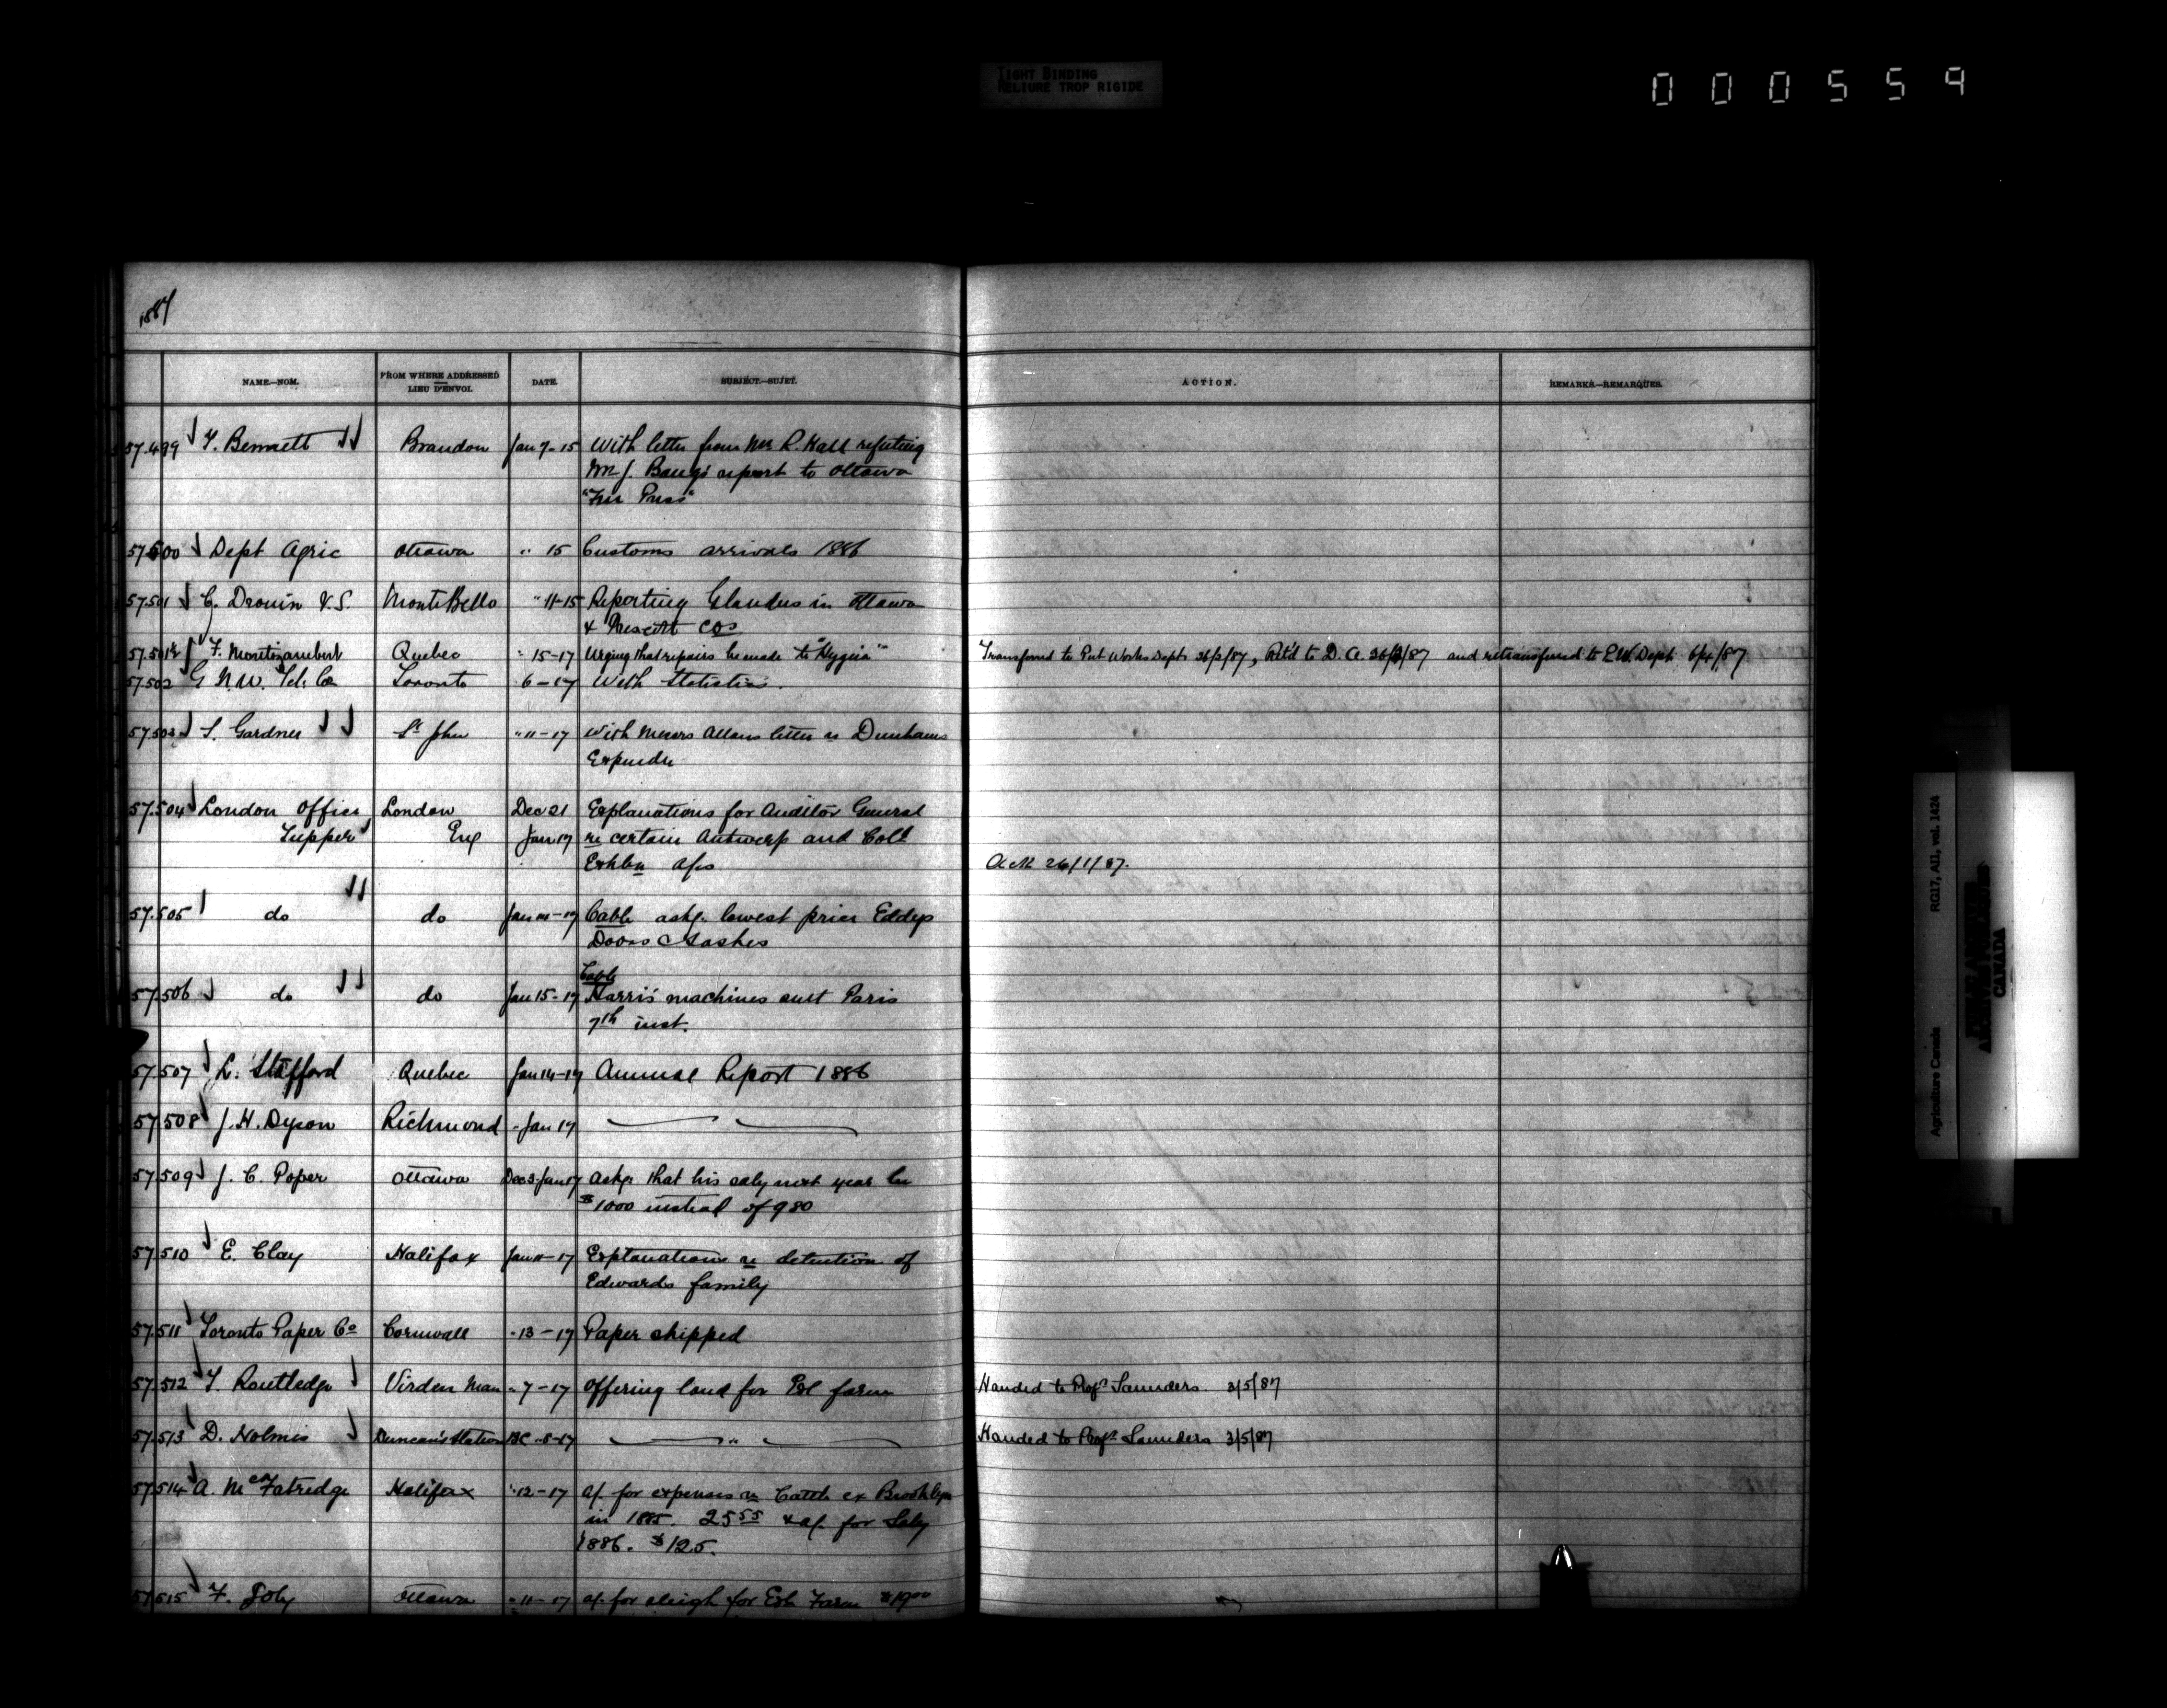 TIGHT BINDING
RELIURE TROP RIGIDE
000559
1887
NAME.—NOM. FROM WHERE ADDRESSED LIEU D'ENVOI. DATE. SUBJECT.—SUJET. ACTION. REMARKS.—REMARQUES.
57.499 T. Bennett Brandon Jan 7-15 With letter from Mr R. Hall refuting
Mr J. report to Ottawa
"Free Press"
57.500 Dept Agric Ottawa " 15 Customs arrivals 1886
57.501 C. Drouin V.S. MonteBello " 11-15 Reporting Glanders in Ottawa
& Prescott Cos
57.501½ F. Montizambert Quebec " 15-17 Urging that repairs be made to "Hygeia" Transferred to Pub Works Dept 26/2/87, Retd to D. A. 26/3/87 and retransferred to P.W. Dept 6/4/87
57.502 G N.W. Tel. Co Toronto 6-17 With Statistics.
57.503 S. Gardner St John " 11-17 With Messrs Allans letter re Dunhams
Expendre
57.504 London Office London Dec 21 Explanations for Auditor General
Tupper Eng Jan 17 re certain Antwerp and Coll
Exhbn a/cs Ack 26/1/87.
57.505 do do Jan 14-17 Cable askg. lowest price Eddys
Doors & Sashes
57.506 do do Jan 15-17 Cable
Harris' machines sent Paris
7th inst.
57.507 L. Stafford Quebec Jan 14-17 Annual Report 1886
57.508 J. H. Dyson Richmond " Jan 17
57.509 J. C. Poper Ottawa Dec 3. Jan 17 Askg. that his saly next year be
$1000 instead of 980
57.510 E. Clay Halifax Jan 11-17 Explanations re detention of
Edwards family
57.511 Toronto Paper Co Cornwall " 13-17 Paper shipped
57.512 T. Routledge Virden Man " 7-17 Offering land for Exl farm Handed to Profr Saunders. 3/5/87
57.513 D. Holmes Duncan's Station BC " 8-17 " Handed to Profr Saunders 3/5/87
57.514 A. McFatridge Halifax " 12-17 a/. for expenses re Cattle ex Brooklyn
in 1885. 25 55 & a/. for Saly
1886. $125.
57.515 F. Joly Ottawa " 11-17 a/. for sleigh for Exl Farm $19 00
Agriculture Canada RG17, AII, vol. 1424
CANADA